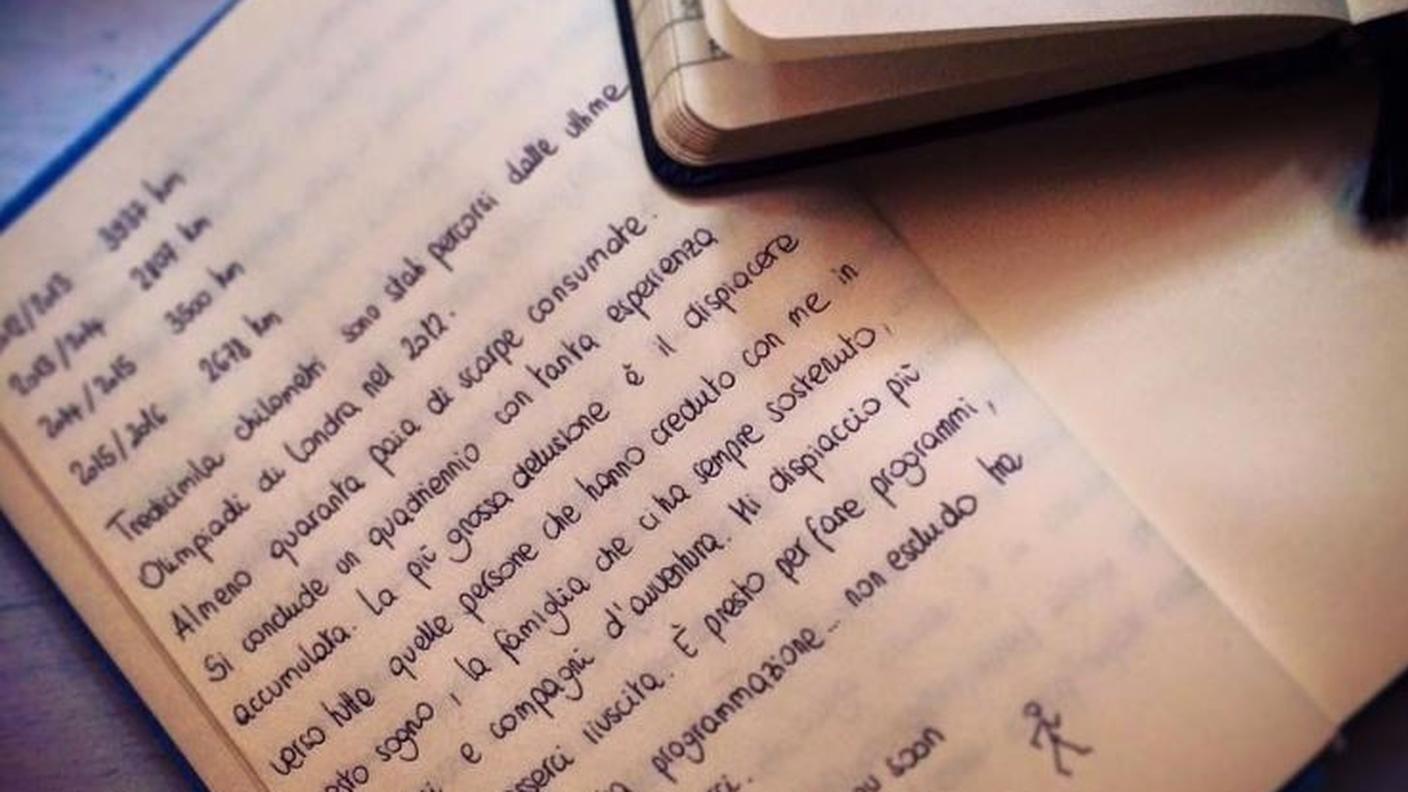 2012/2013 3937 km
2013/2014 2807 km
2014/2015 3500 km
2015/2016 2678 km
Tredicimila chilometri sono stati percorsi dalle ultime
Olimpiadi di Londra nel 2012.
Almeno quaranta paia di scarpe consumate.
Si conclude un quadriennio con tanta esperienza
accumulata. La più grossa delusione è il dispiacere
verso tutte quelle persone che hanno creduto con me in
sogno, la famiglia che ci ha sempre sostenuto,
e compagni d'avventura. Mi dispiaccio più
riuscita. È presto per fare programmi,
programmazione... non escludo tra
soon